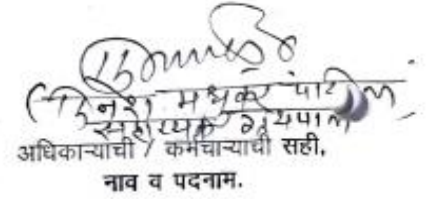 (दिनेश मधुकर पाटील)
सहाय्यक ग्रंथपाल
अधिकाऱ्याची / कर्मचाऱ्याची सही,
नाव व पदनाम.